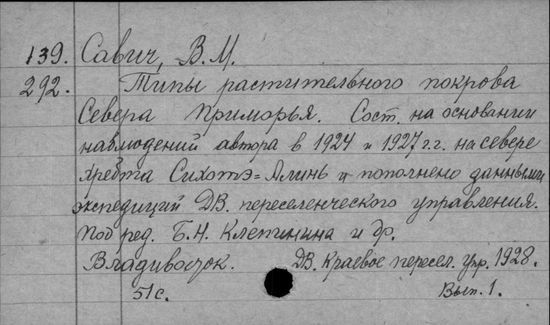 139. Савич, В. М.
292. Типы растительного покрова
Севера Приморья. Сост. на основании
наблюдений автора в 1924 и 1927 г.г. на севере
хребта Сихотэ=Алинь и пополнено данными
экспедиций ДВ. переселенческого управления.
Под ред. Б. Н. Клепинина и др.
Владивосток. ДВ. Краевое пересел. Упр. 1928.
51 с. Вып. 1.